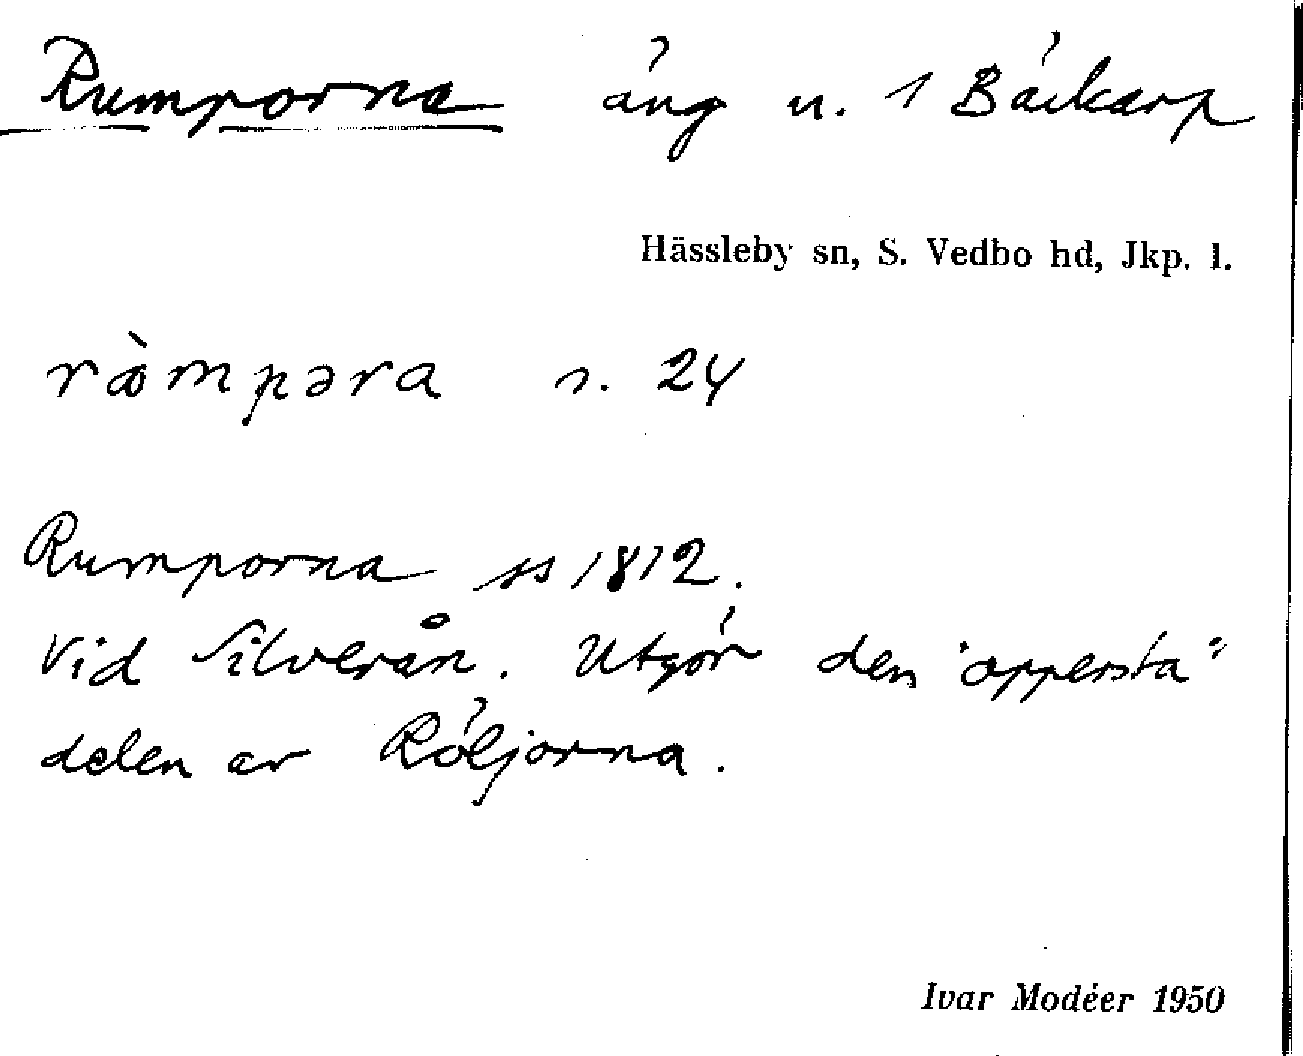 Rumporna äng n. 1 Bäckarp
Hässleby sn, S. Vedbo hd, Jkp. l.
ròmpəra s. 24
Rumporna ss 1812.
Vid Silverån. Utgör den "oppersta"
delen av Röljorna.
Ivar Modéer 1950